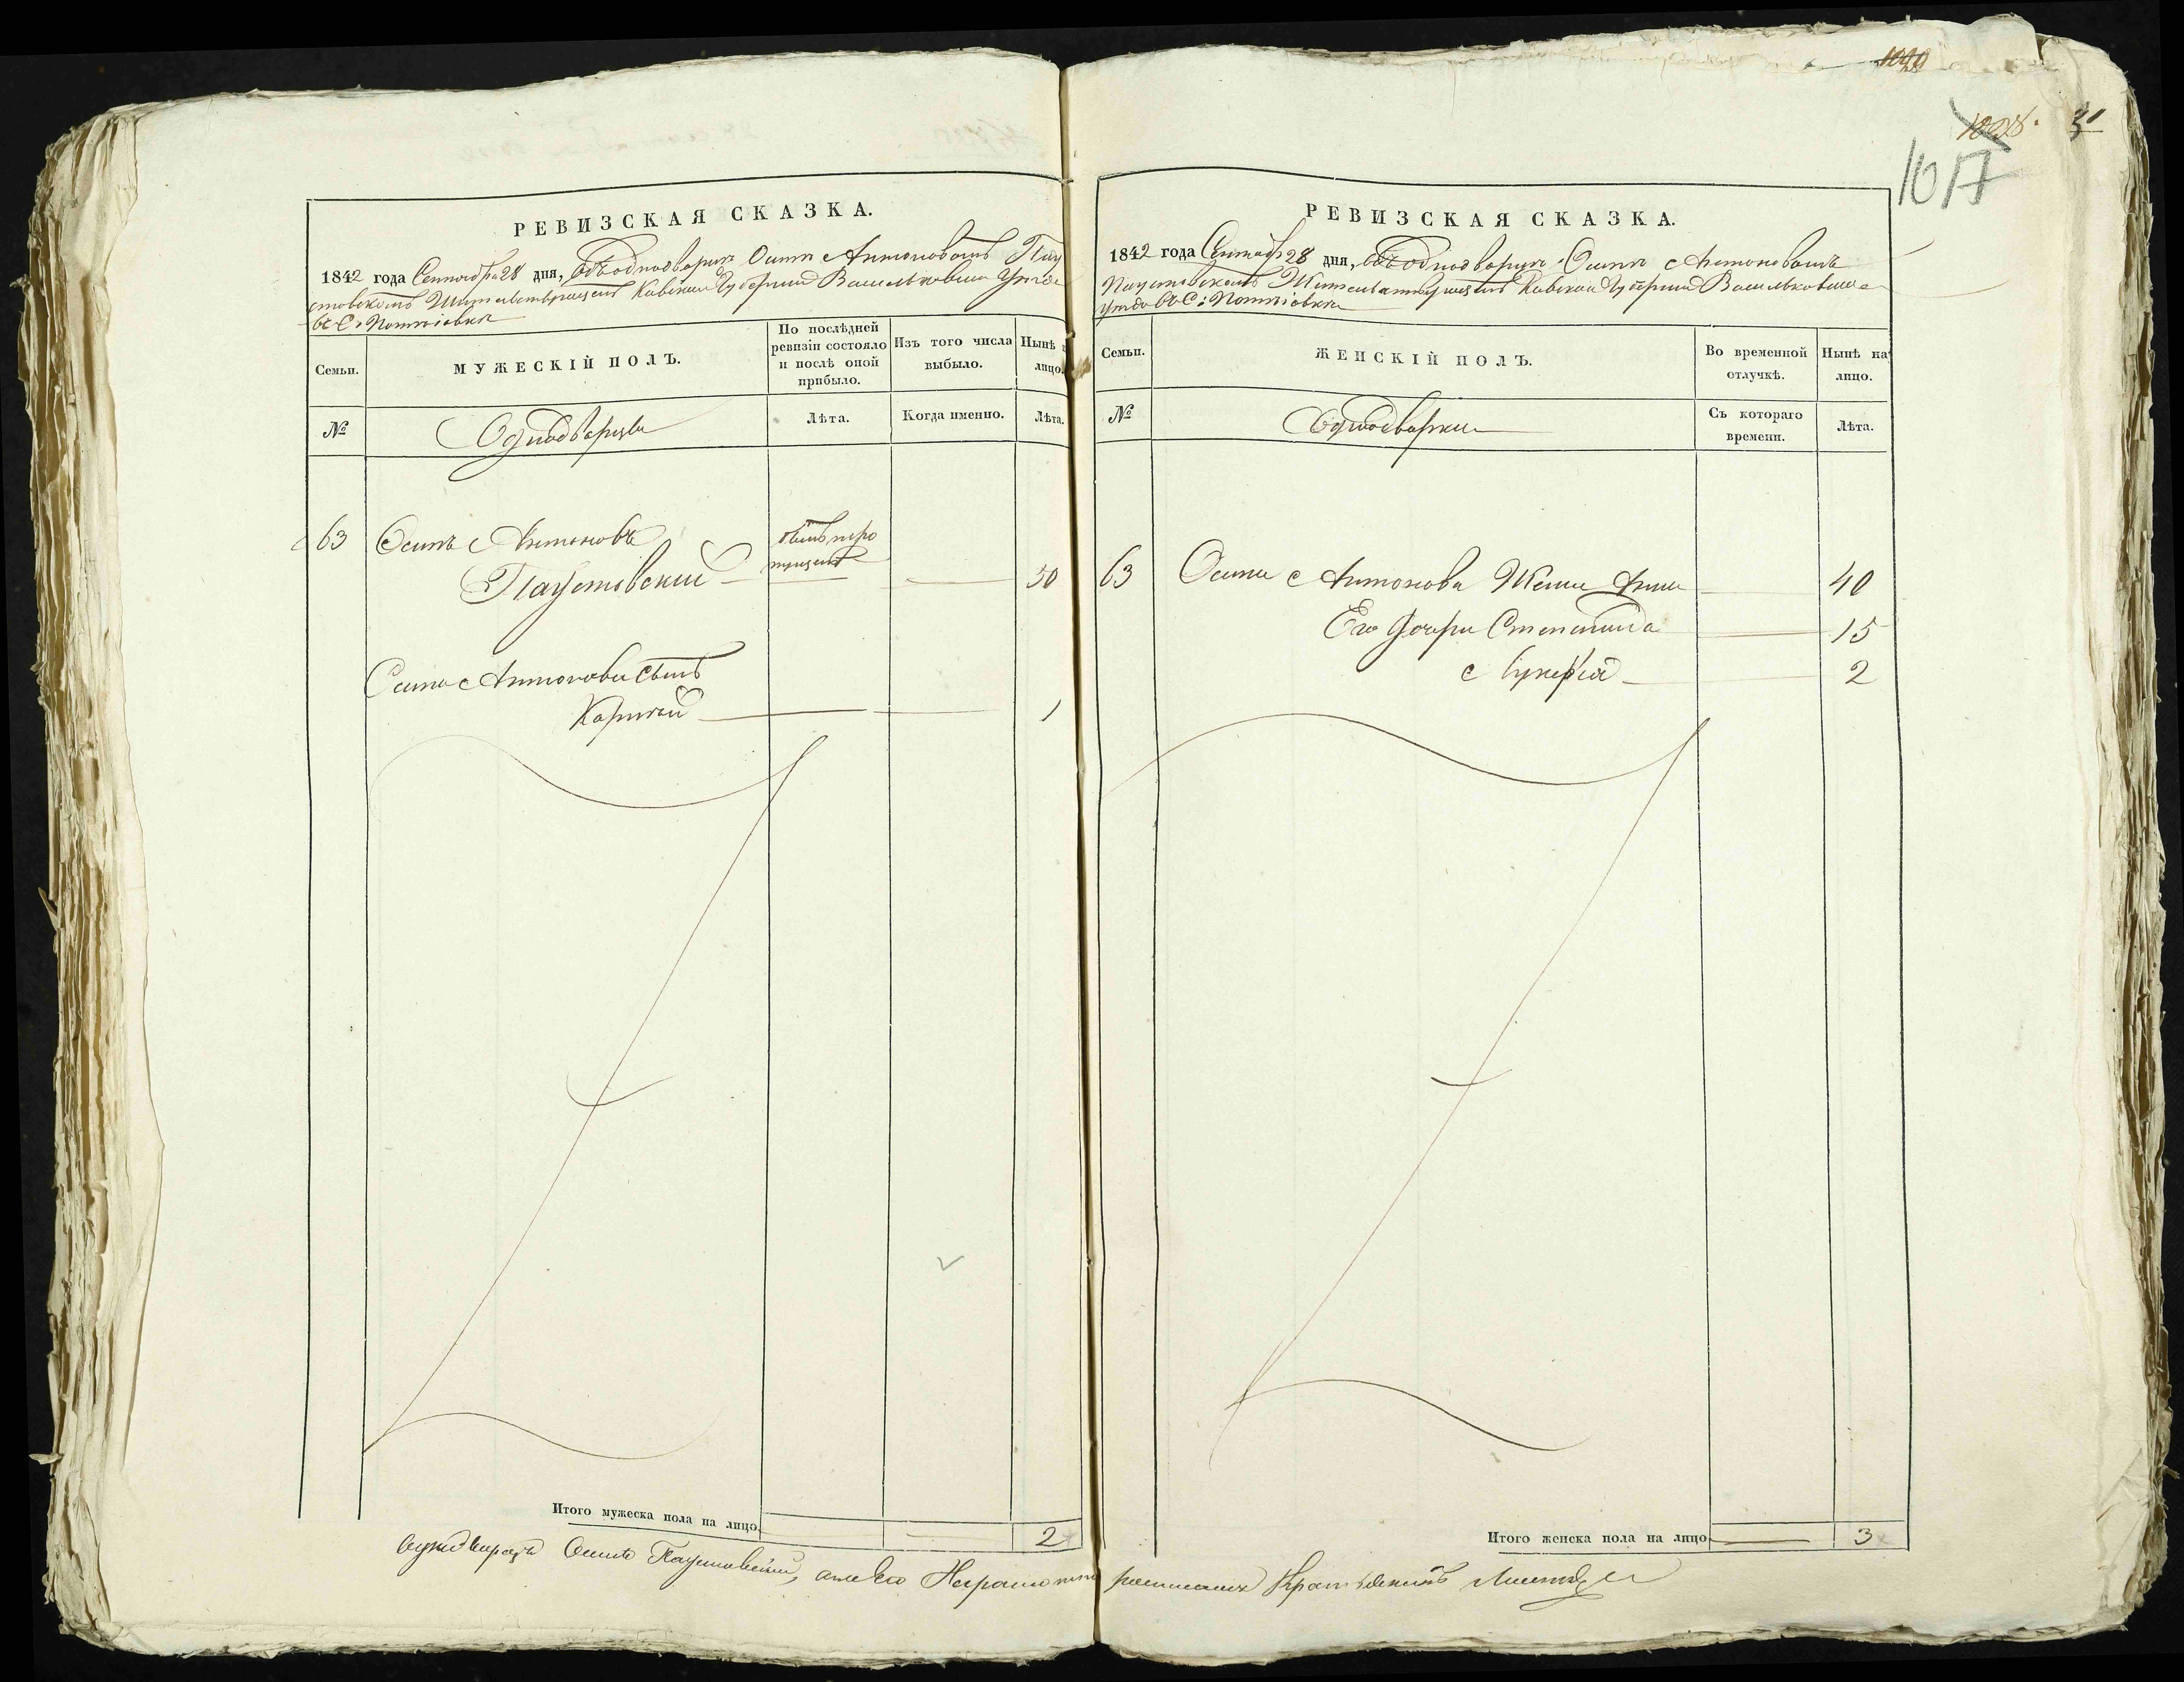 31
1017
РЕВИЗСКАЯ СКАЗКА.
1842 года Сентября 28 дня, объ однодворце Осипе Антоновомъ Пау
стовскомъ Жительствующемъ Киевской Губернии Васильковскаго Уезда
въ С: Потиевки
Семьи.
МУЖЕСКІЙ ПОЛЪ.
По послѣдней ревизіи состояло и послѣ оной прибыло.
Изъ того числа выбыло.
Нынѣ лицо.
№
Однодворцы
Лѣта.
Когда именно.
Лѣта.
63 Осипъ Антоновъ
Паустовский 50
Осипа Антонова сынъ
Корней 1
Итого мужеска пола на лицо 2
РЕВИЗСКАЯ СКАЗКА.
1842 года Сентября 28 дня, объ однодворце Осипе Антоновомъ
Паустовскомъ Жительствующемъ Киевской Губернии Васильковскаго
Уезда въ С: Потиевки
Семьи.
ЖЕНСКІЙ ПОЛЪ.
Во временной отлучкѣ.
Нынѣ на лицо.
№
Однодворки
Съ котораго времени.
Лѣта.
63 Осипа Антонова Жена Анна 40
Его Дочри Степанида 15
Лукерия 2
Итого женска пола на лицо 3
Осипъ Паустовский, а